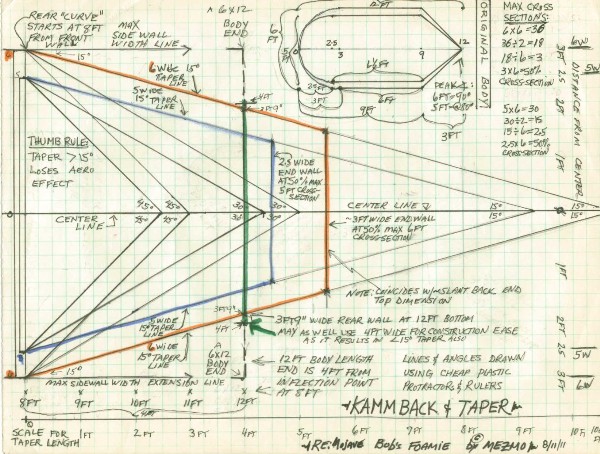 REAR "CURVE"
STARTS AT 8FT
FROM FRONT
WALL
MAX
SIDE WALL
WIDTH LINE
A 6X12
BODY
END
15°
6 WIDE 15°
TAPER
LINE
5 WIDE
15° TAPER
LINE
4FT
3FT9"
THUMB RULE:
TAPER >15°
LOSES AERO
EFFECT
2.5 WIDE
END WALL
AT 50% MAX
5FT CROSS-
SECTION
CENTER
LINE
45° 45°
45° 45°
30° 30°
30° 30°
CENTER LINE
15°
15°
15°
15°
~3FT WIDE END WALL
AT 50% MAX 6FT
CROSS-SECTION
NOTE: COINCIDES W/ SLANT BACK END
TOP DIMENSION
3FT9" WIDE REAR WALL AT 12FT BOTTOM
MAY AS WELL USE 4FT WIDE FOR CONSTRUCTION EASE
AS IT RESULTS IN <15° TAPER ALSO
3FT9"
4FT
5 WIDE
15° TAPER
LINE
6 WIDE
15° TAPER
LINE
A
6X12
BODY
END
12FT BODY LENGTH
END IS 4FT FROM
INFLECTION POINT
AT 8FT
LINES & ANGLES DRAWN
USING CHEAP PLASTIC
PROTRACTORS & RULERS
15°
MAX SIDEWALL WIDTH EXTENSION LINE
8FT 9FT 10FT 11FT 12FT
4FT
KAMMBACK & TAPER
SCALE FOR
TAPER LENGTH
0 1FT 2FT 3FT 4FT 5FT 6FT 7FT 8FT 9FT 10FT
RE: MOJAVE BOB'S FOAMIE © BY MEZMO 8/11/11
12FT
6FT
5FT
0 2.5 3 9 12
6FT
2.5FT
3FT
6FT
9FT
3FT
PEAK
6FT=90°
5FT=@80°
ORIGINAL BODY
MAX CROSS
SECTIONS:
6X6=36
36÷2=18
18÷6=3
3X6=50%
CROSS-SECTION
5X6=30
30÷2=15
15÷6=2.5
2.5X6=50%
CROSS-SECTION
DISTANCE FROM CENTER
6W
5W
3FT 2.5 2FT 1FT
1FT 2FT 2.5 3FT
5W
6W